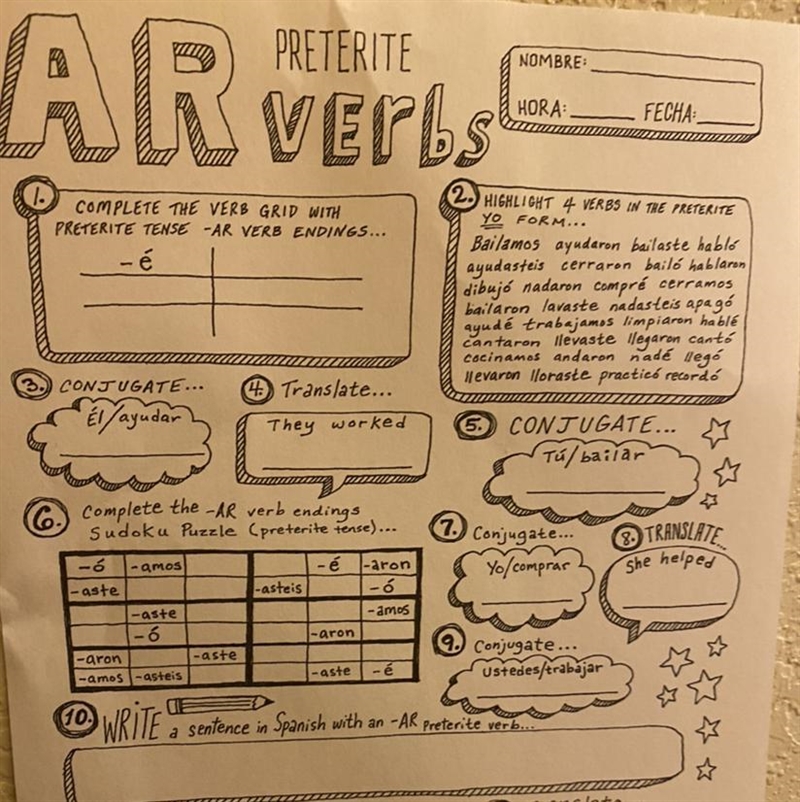 AR PRETERITE verbs
NOMBRE:
HORA: FECHA:
1. COMPLETE THE VERB GRID WITH
PRETERITE TENSE -AR VERB ENDINGS...
-é
2. HIGHLIGHT 4 VERBS IN THE PRETERITE
YO FORM...
Bailamos ayudaron bailaste habló
ayudasteis cerraron bailó hablaron
dibujó nadaron compré cerramos
bailaron lavaste nadasteis apagó
ayudé trabajamos limpiaron hablé
cantaron llevaste llegaron cantó
cocinamos andaron nadé llegó
llevaron lloraste practicó recordó
3. CONJUGATE...
Él/ayudar
4. Translate...
They worked
5. CONJUGATE...
Tú/bailar
6. Complete the -AR verb endings
Sudoku Puzzle (preterite tense)...
-ó -amos -é -aron
-aste -asteis -ó
-aste -amos
-ó -aron
-aron -aste
-amos -asteis -aste -é
7. Conjugate...
Yo/comprar
8. TRANSLATE...
She helped
9. Conjugate...
Ustedes/trabajar
10. WRITE a sentence in Spanish with an -AR Preterite verb...